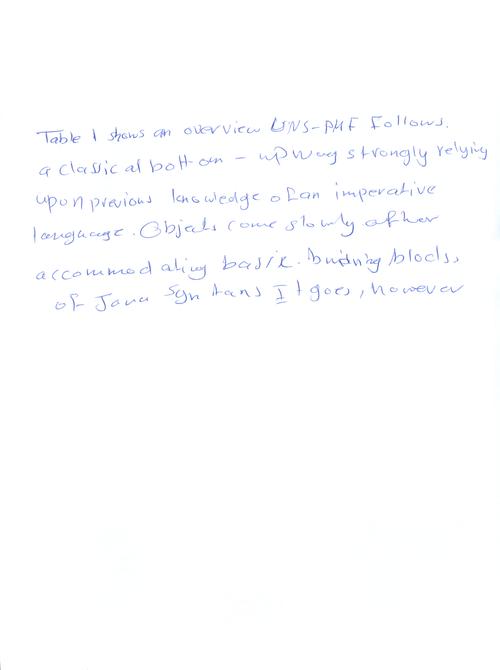 Table 1 shows an overview UNS-PMF Follows.
a classical bottom - up way strongly relying
upon previous knowledge of an imperative
language. Objects come slowly after
accommodating basic. building blocks,
of Java Syntans It goes, however